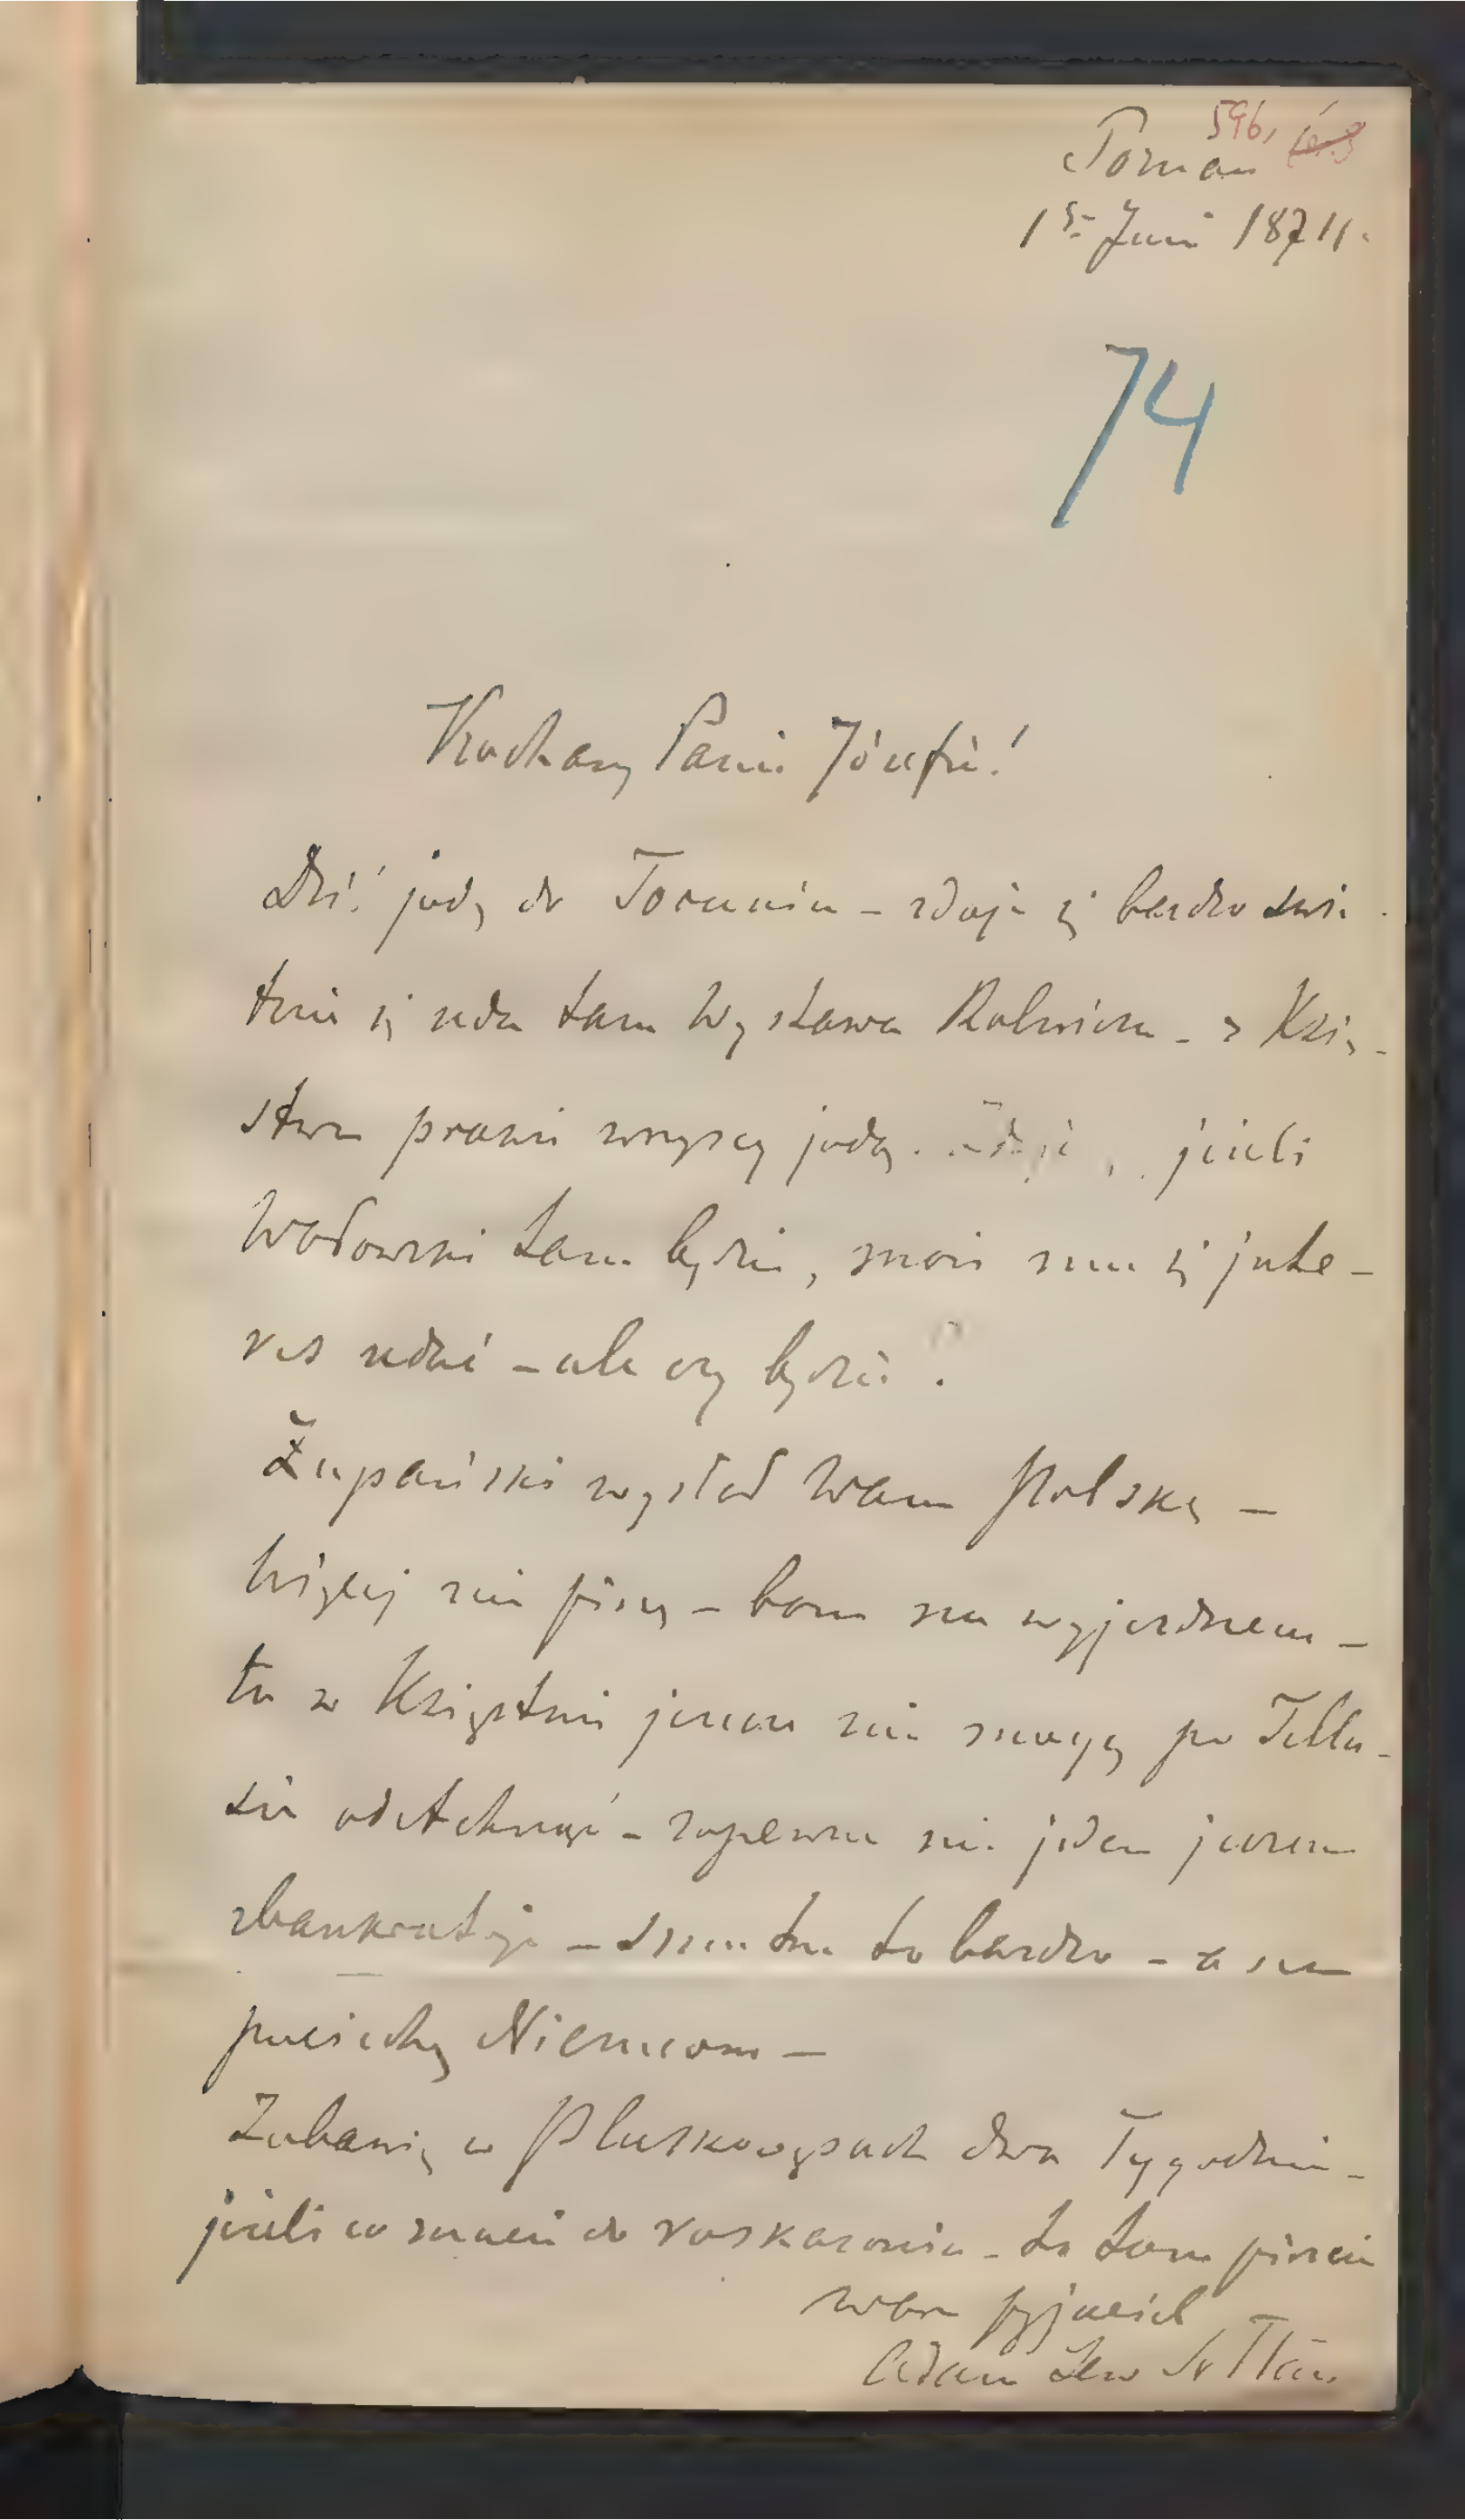 596,
Poznań
1 5- Juni 1874.
74
Kochany Panie Józefie!
Dziś jadę do Torunia – zdaje się bardzo świe
tnie się uda tam Wystawa Rolnicza – z Księ-
stwa prawie wszyscy jadą. jeżeli
Wołowski tam będzie, może mu się inte-
res udać – ale czy będzie?
Żupański wysłał Wam Polskę –
Więcej nie piszę – bom na wyjezdnem –
tu w Księstwie jeszcze nie mogą po Tellu-
sie odetchnąć – zapewne nie jeden jeszcze
zbankrutuje – smutne to bardzo – a na
pociechę Niemcom –
Zabawię w Pluskowęsach dwa Tygodnie –
jeżeli co macie do rozkazania – to tam piszcie
Wasz przyjaciel
Adam Lew Sołtan